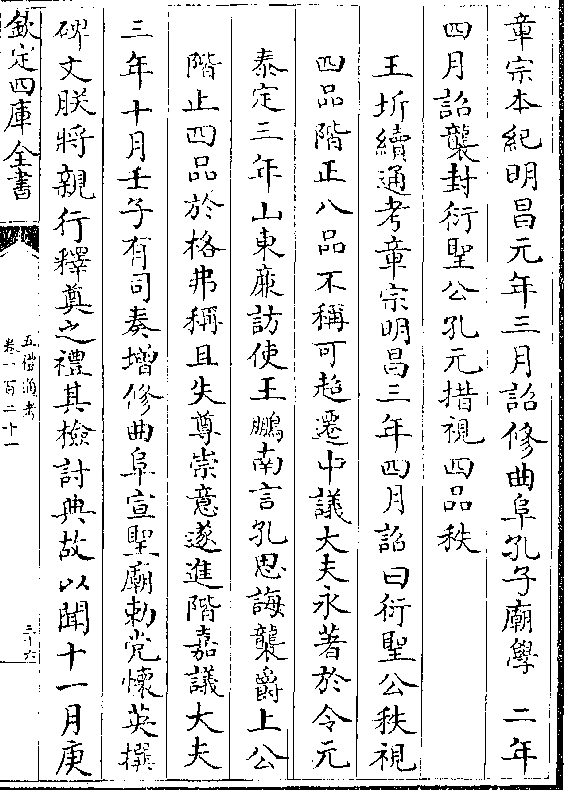 章宗本紀明昌元年三月詔修曲阜孔子廟學　二年
四月詔襲封衍聖公孔元措視四品秩
王圻續通考章宗明昌三年四月詔曰衍聖公秩視
四品階正八品不稱可超遷中議大夫永著於令元
泰定三年山東廉訪使王鵬南言孔思誨襲爵上公
階止四品於格弗稱且失尊崇意遂進階嘉議大夫
三年十月壬子有司奏增修曲阜宣聖廟勅党懷英撰
碑文朕將親行釋奠之禮其檢討典故以聞十一月庚
欽定四庫全書
五禮通考
卷一百二十一
三十六